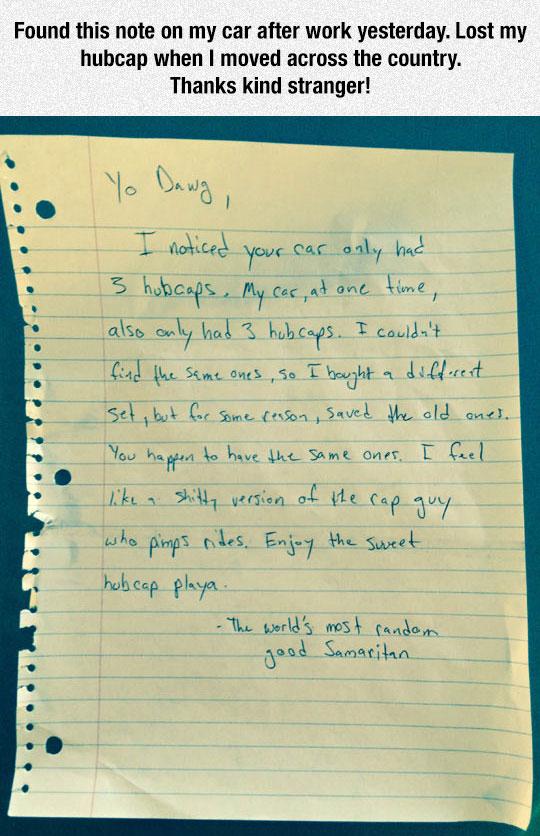 Found this note on my car after work yesterday. Lost my
hubcap when I moved across the country.
Thanks kind stranger!
Yo Dawg,
I noticed your car only had
3 hubcaps. My car, at one time,
also only had 3 hubcaps. I couldn't
find the same ones, so I bought a different
set, but for some reason, saved the old ones.
You happen to have the same ones. I feel
like a shitty version of the rap guy
who pimps rides. Enjoy the sweet
hubcap playa.
- The world's most random
good Samaritan